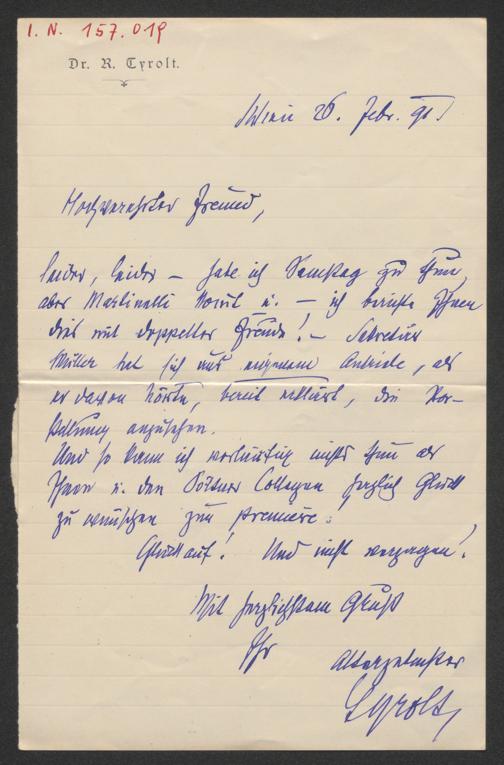 I. N. 157.019
Dr. R. Tyrolt.
Wien 26. Febr. 91.
Hochverehrter Freund,
leider, leider – habe ich Samstag zu thun,
aber Martinelli kommt u. – ich berichte Ihnen
dies mit doppelter Freude! – Sekretär
Müller hat sich aus eigenem Antriebe, als
er davon hörte, bereit erklärt, die Vor-
stellung anzusehen.
Und so kann ich vorläufig nichts thun als
Ihnen u. den Collegen herzlich Glück
zu wünschen zur Premiere.
Glück auf! Und nicht verzagen!
Mit herzlichstem Gruß
Ihr
Tyrolt